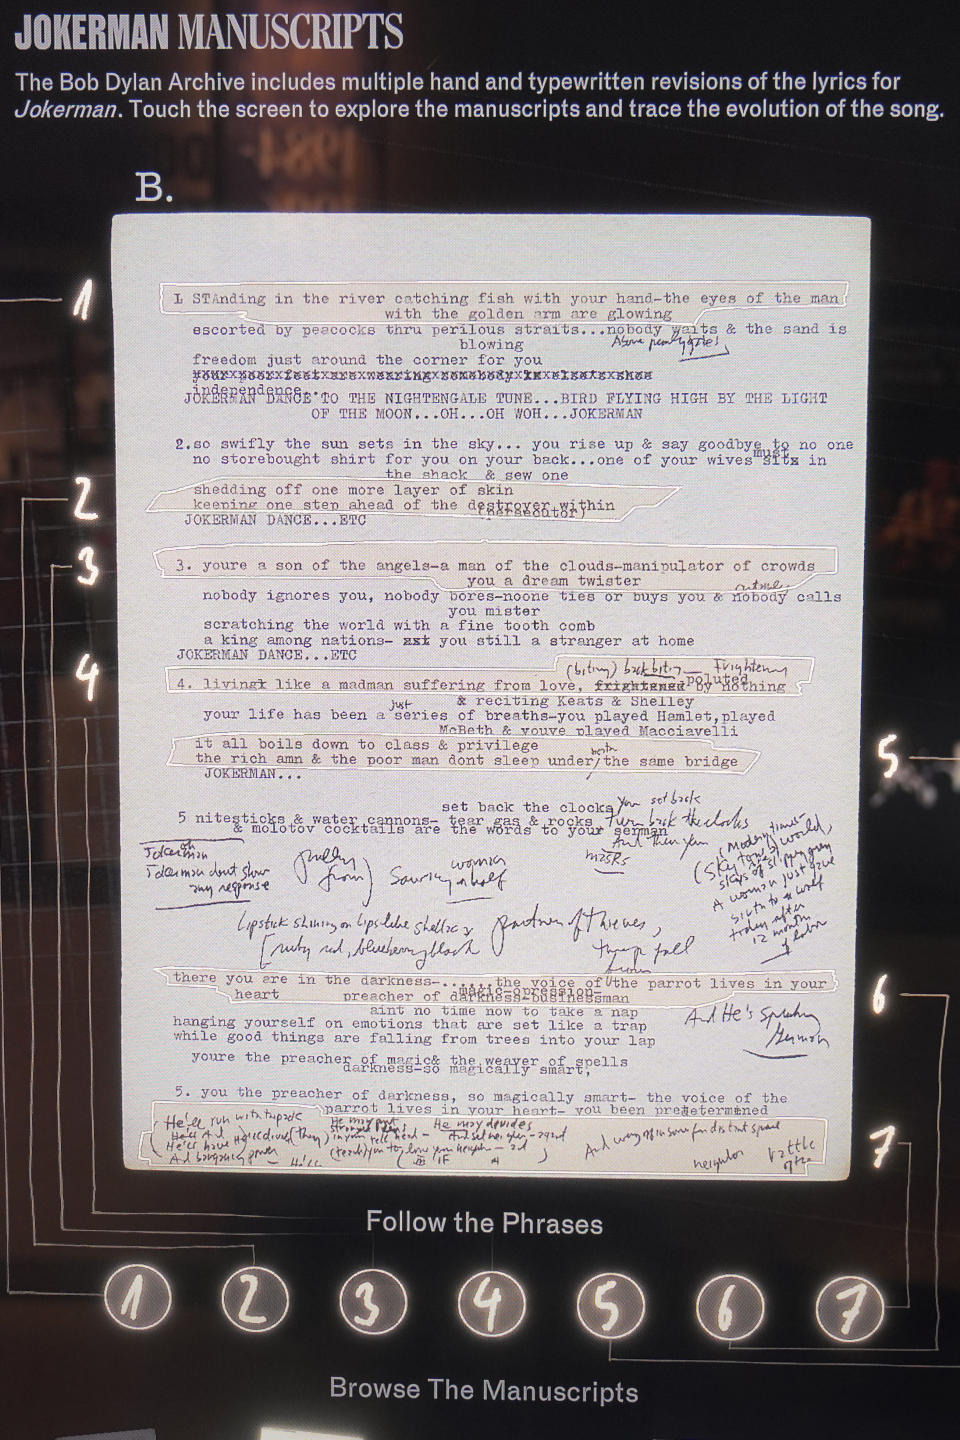 JOKERMAN MANUSCRIPTS
The Bob Dylan Archive includes multiple hand and typewritten revisions of the lyrics for
Jokerman. Touch the screen to explore the manuscripts and trace the evolution of the song.
B.
1
1. STAnding in the river catching fish with your hand-the eyes of the man
with the golden arm are glowing
escorted by peacocks thru perilous straits...nobody waits & the sand is
blowing
Above pearly gates
freedom just around the corner for you
independence...
JOKERMAN DANCE TO THE NIGHTENGALE TUNE...BIRD FLYING HIGH BY THE LIGHT
OF THE MOON...OH...OH WOH...JOKERMAN
2.so swifly the sun sets in the sky... you rise up & say goodbye to no one
no storebought shirt for you on your back...one of your wives must sit in
the shack & sew one
2
shedding off one more layer of skin
keeping one step ahead of the destroyer within
(persecutor)
JOKERMAN DANCE...ETC
3
3. youre a son of the angels-a man of the clouds-manipulator of crowds
you a dream twister
nobody ignores you, nobody bores-noone ties or buys you & nobody calls
you mister
scratching the world with a fine tooth comb
a king among nations- you still a stranger at home
JOKERMAN DANCE...ETC
4
(biting) backbiting frightening
poluted
4. living like a madman suffering from love, frightened by nothing
& reciting Keats & Shelley
just
your life has been a series of breaths-you played Hamlet,played
McBeth & youve played Macciavelli
5
it all boils down to class & privilege
the rich amn & the poor man dont sleep under/the same bridge
JOKERMAN...
set back the clocks You set back
5 nitesticks & water cannons- tear gas & rocks turn back the clocks
& molotov cocktails are the words to your serman
And then you
oh
Jokerman
Jokerman dont show
any response
woman
(Modern times
A woman just gave
birth to a wolf
today after
12 months
of labor
Lipstick shining on lips like shellac
partner of thieves,
ruby red, blueberry black
6
there you are in the darkness-......the voice of the parrot lives in your
heart preacher of darkness-businessman
magic-opression-
aint no time now to take a nap
hanging yourself on emotions that are set like a trap
And He's speaking
while good things are falling from trees into your lap
youre the preacher of magic& the weaver of spells
darkness-so magically smart,
5. you the preacher of darkness, so magically smart- the voice of the
parrot lives in your heart- you been predetermined
7
He'll run with
bargaining power
neighbor
Follow the Phrases
1 2 3 4 5 6 7
Browse The Manuscripts